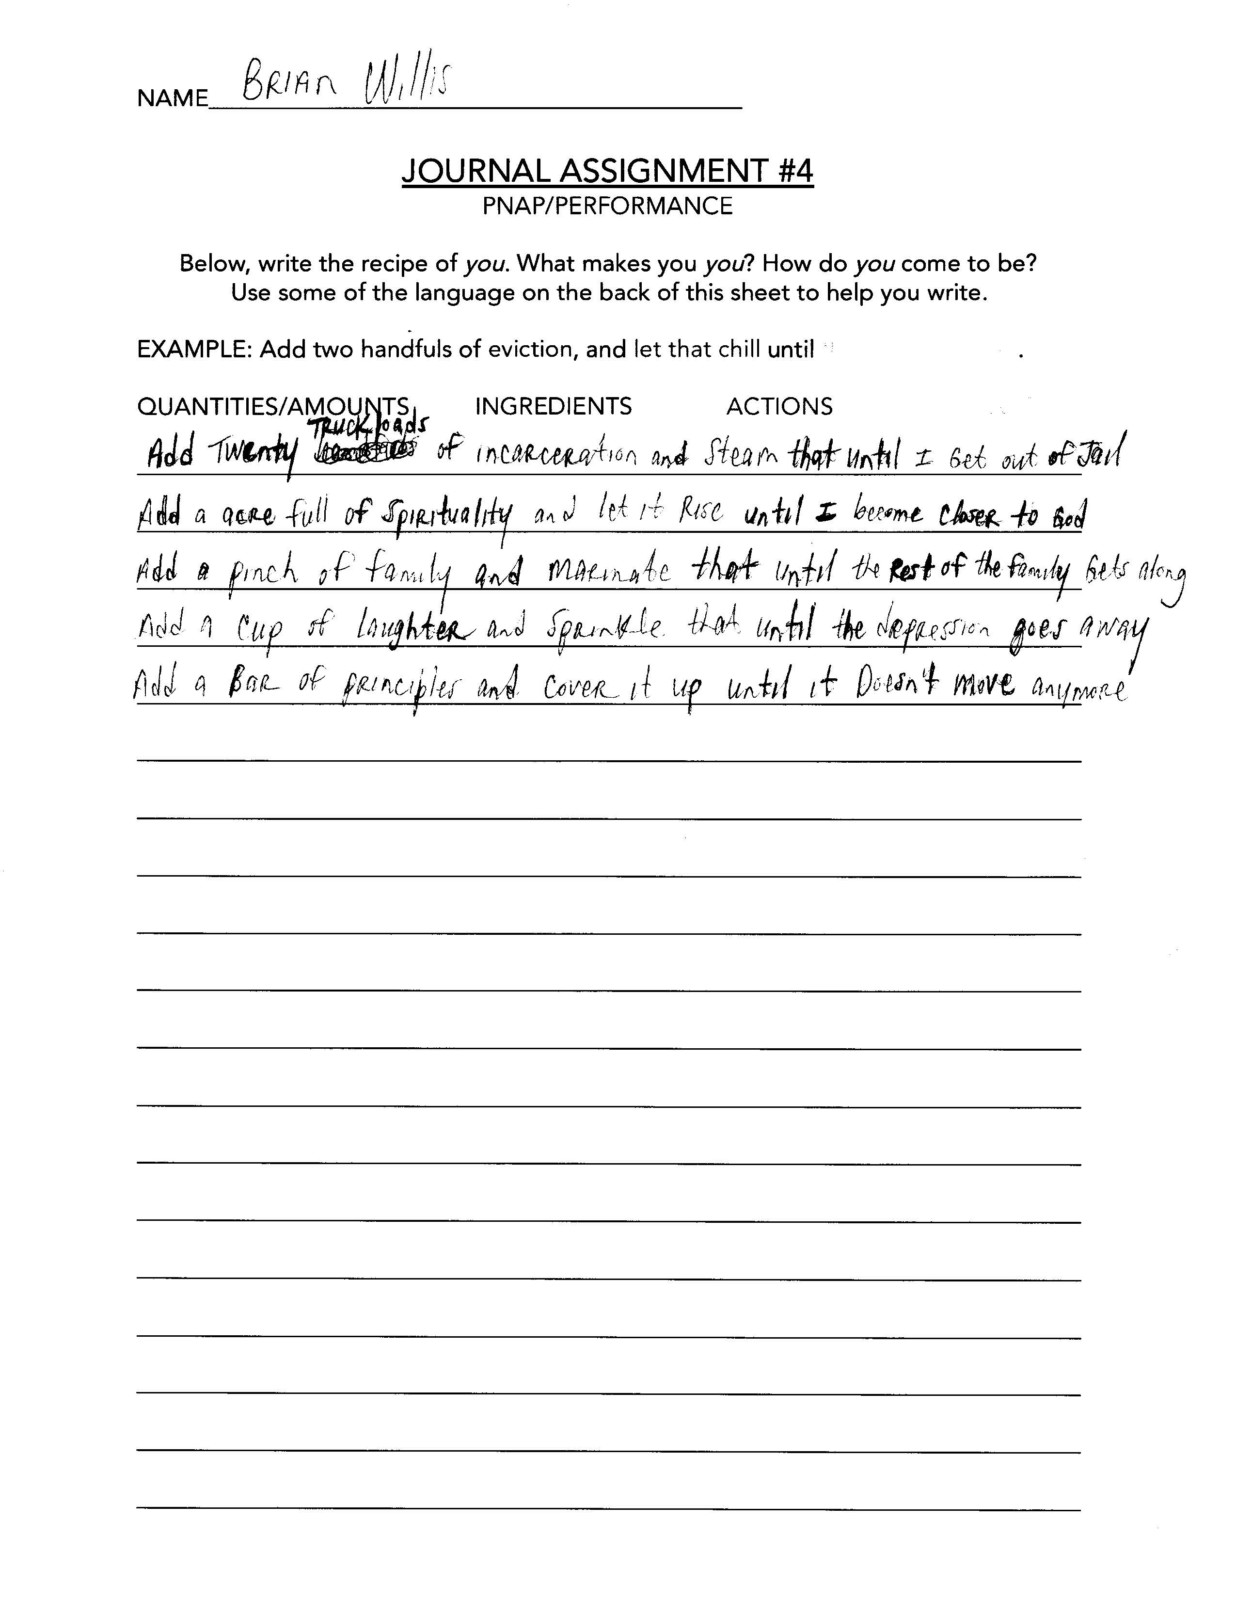 NAME BRIAN Willis
JOURNAL ASSIGNMENT #4
PNAP/PERFORMANCE
Below, write the recipe of you. What makes you you? How do you come to be?
Use some of the language on the back of this sheet to help you write.
EXAMPLE: Add two handfuls of eviction, and let that chill until
QUANTITIES/AMOUNTS INGREDIENTS ACTIONS
Truckloads
Add Twenty of incarceration and Steam that until I Get out of Jail
Add a acre full of Spirituality and let it Rise until I become closer to God
Add a pinch of family and marinate that until the Rest of the family Gets along
Add a cup of laughter and Sprinkle that until the depression goes away
Add a Bar of principles and cover it up until it Doesn't move anymore